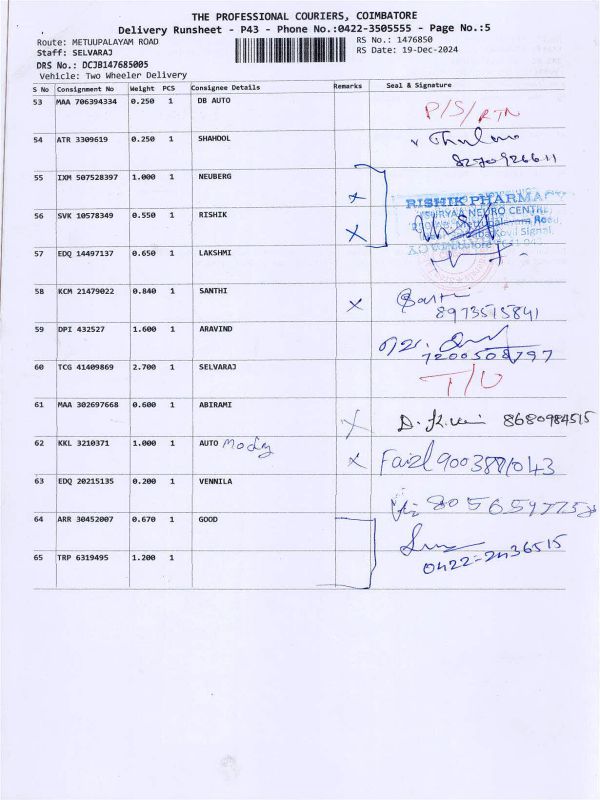 THE PROFESSIONAL COURIERS, COIMBATORE
Delivery Runsheet - P43 - Phone No.:0422-3505555 - Page No.:5
Route: METUUPALAYAM ROAD
RS No.: 1476850
Staff: SELVARAJ
RS Date: 19-Dec-2024
DRS No.: DCJB147685005
Vehicle: Two Wheeler Delivery
S No Consignment No Weight PCS Consignee Details Remarks Seal & Signature
53 MAA 706394334 0.250 1 DB AUTO P/S/RTN
54 ATR 3309619 0.250 1 SHAHOOL
55 IXM 507528397 1.000 1 NEUBERG x
RISHIK PHARMACY
(SURYAA NEURO CENTRE)
56 SVK 10578349 0.550 1 RISHIK x
57 EDQ 14497137 0.650 1 LAKSHMI
58 KCM 21479022 0.840 1 SANTHI x
8973515841
59 DPI 432527 1.600 1 ARAVIND
7200508797
60 TCG 41409869 2.700 1 SELVARAJ T/U
61 MAA 302697668 0.600 1 ABIRAMI x 8680984515
62 KKL 3210371 1.000 1 AUTO x
63 EDQ 20215135 0.200 1 VENNILA
64 ARR 30452007 0.670 1 GOOD
0422-2436515
65 TRP 6319495 1.200 1